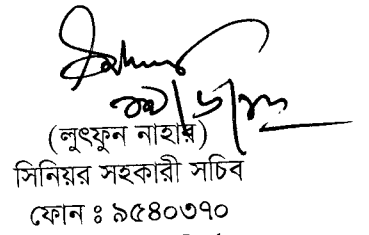 (লুৎফুন নাহার)
সিনিয়র সহকারী সচিব
ফোন ঃ ৯৫৪০৩৭০